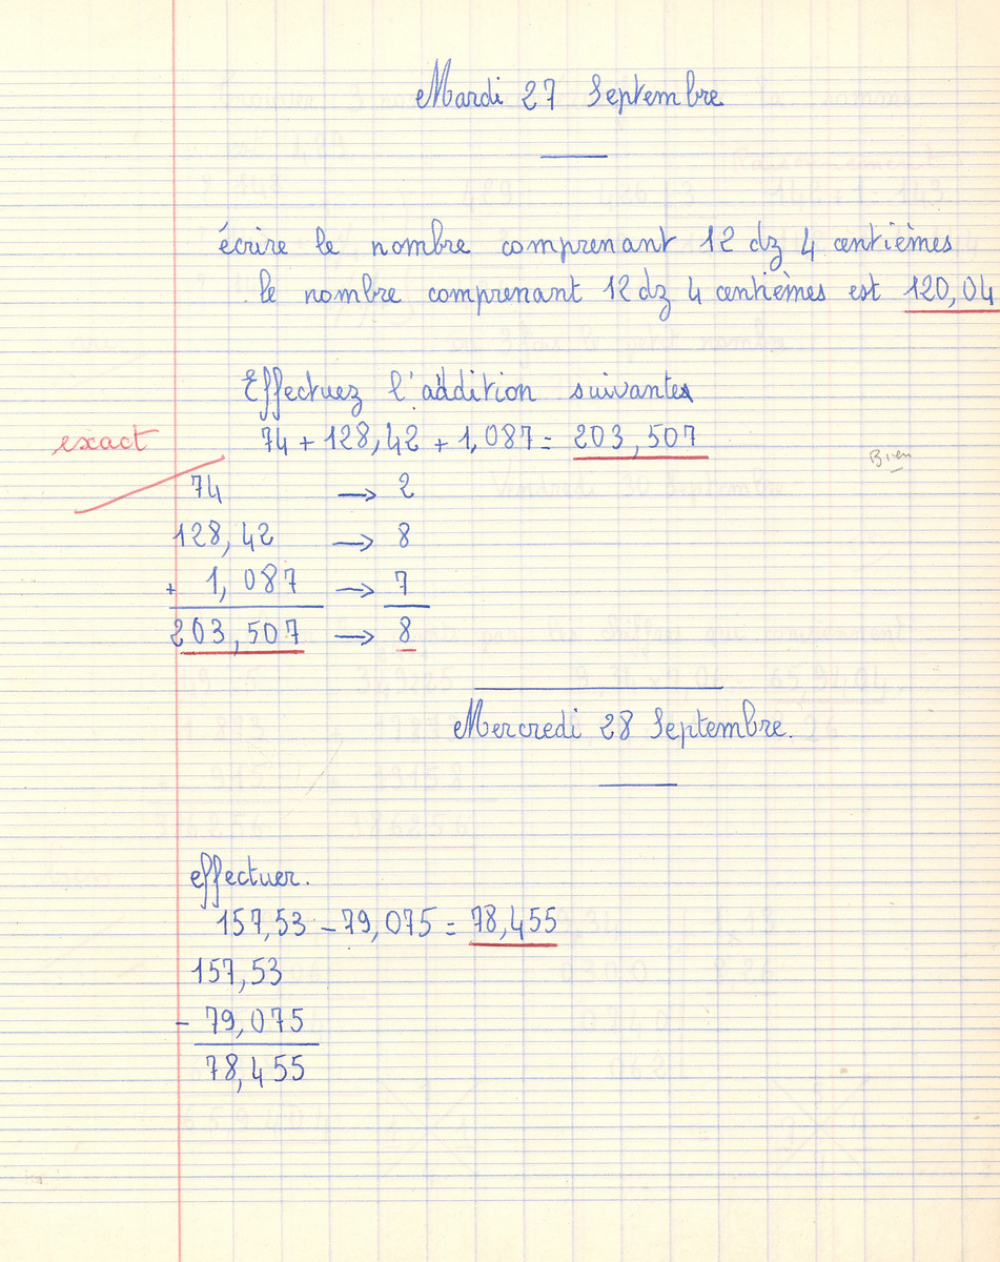 Mardi 27 Septembre
écrire le nombre comprenant 12 dz 4 centièmes
le nombre comprenant 12 dz 4 centièmes est 120,04
Effectuez l'addition suivantes
exact
74 + 128,42 + 1,087 = 203,507
Bien
74 → 2
128,42 → 8
+ 1,087 → 7
203,507 → 8
Mercredi 28 Septembre.
effectuer.
157,53 - 79,075 = 78,455
157,53
- 79,075
78,455